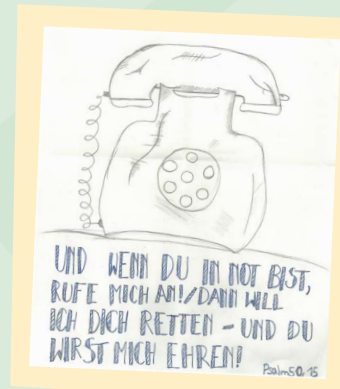 UND WENN DU IN NOT BIST,
RUFE MICH AN!/DANN WILL
ICH DICH RETTEN - UND DU
WIRST MICH EHREN!
Psalm 50, 15